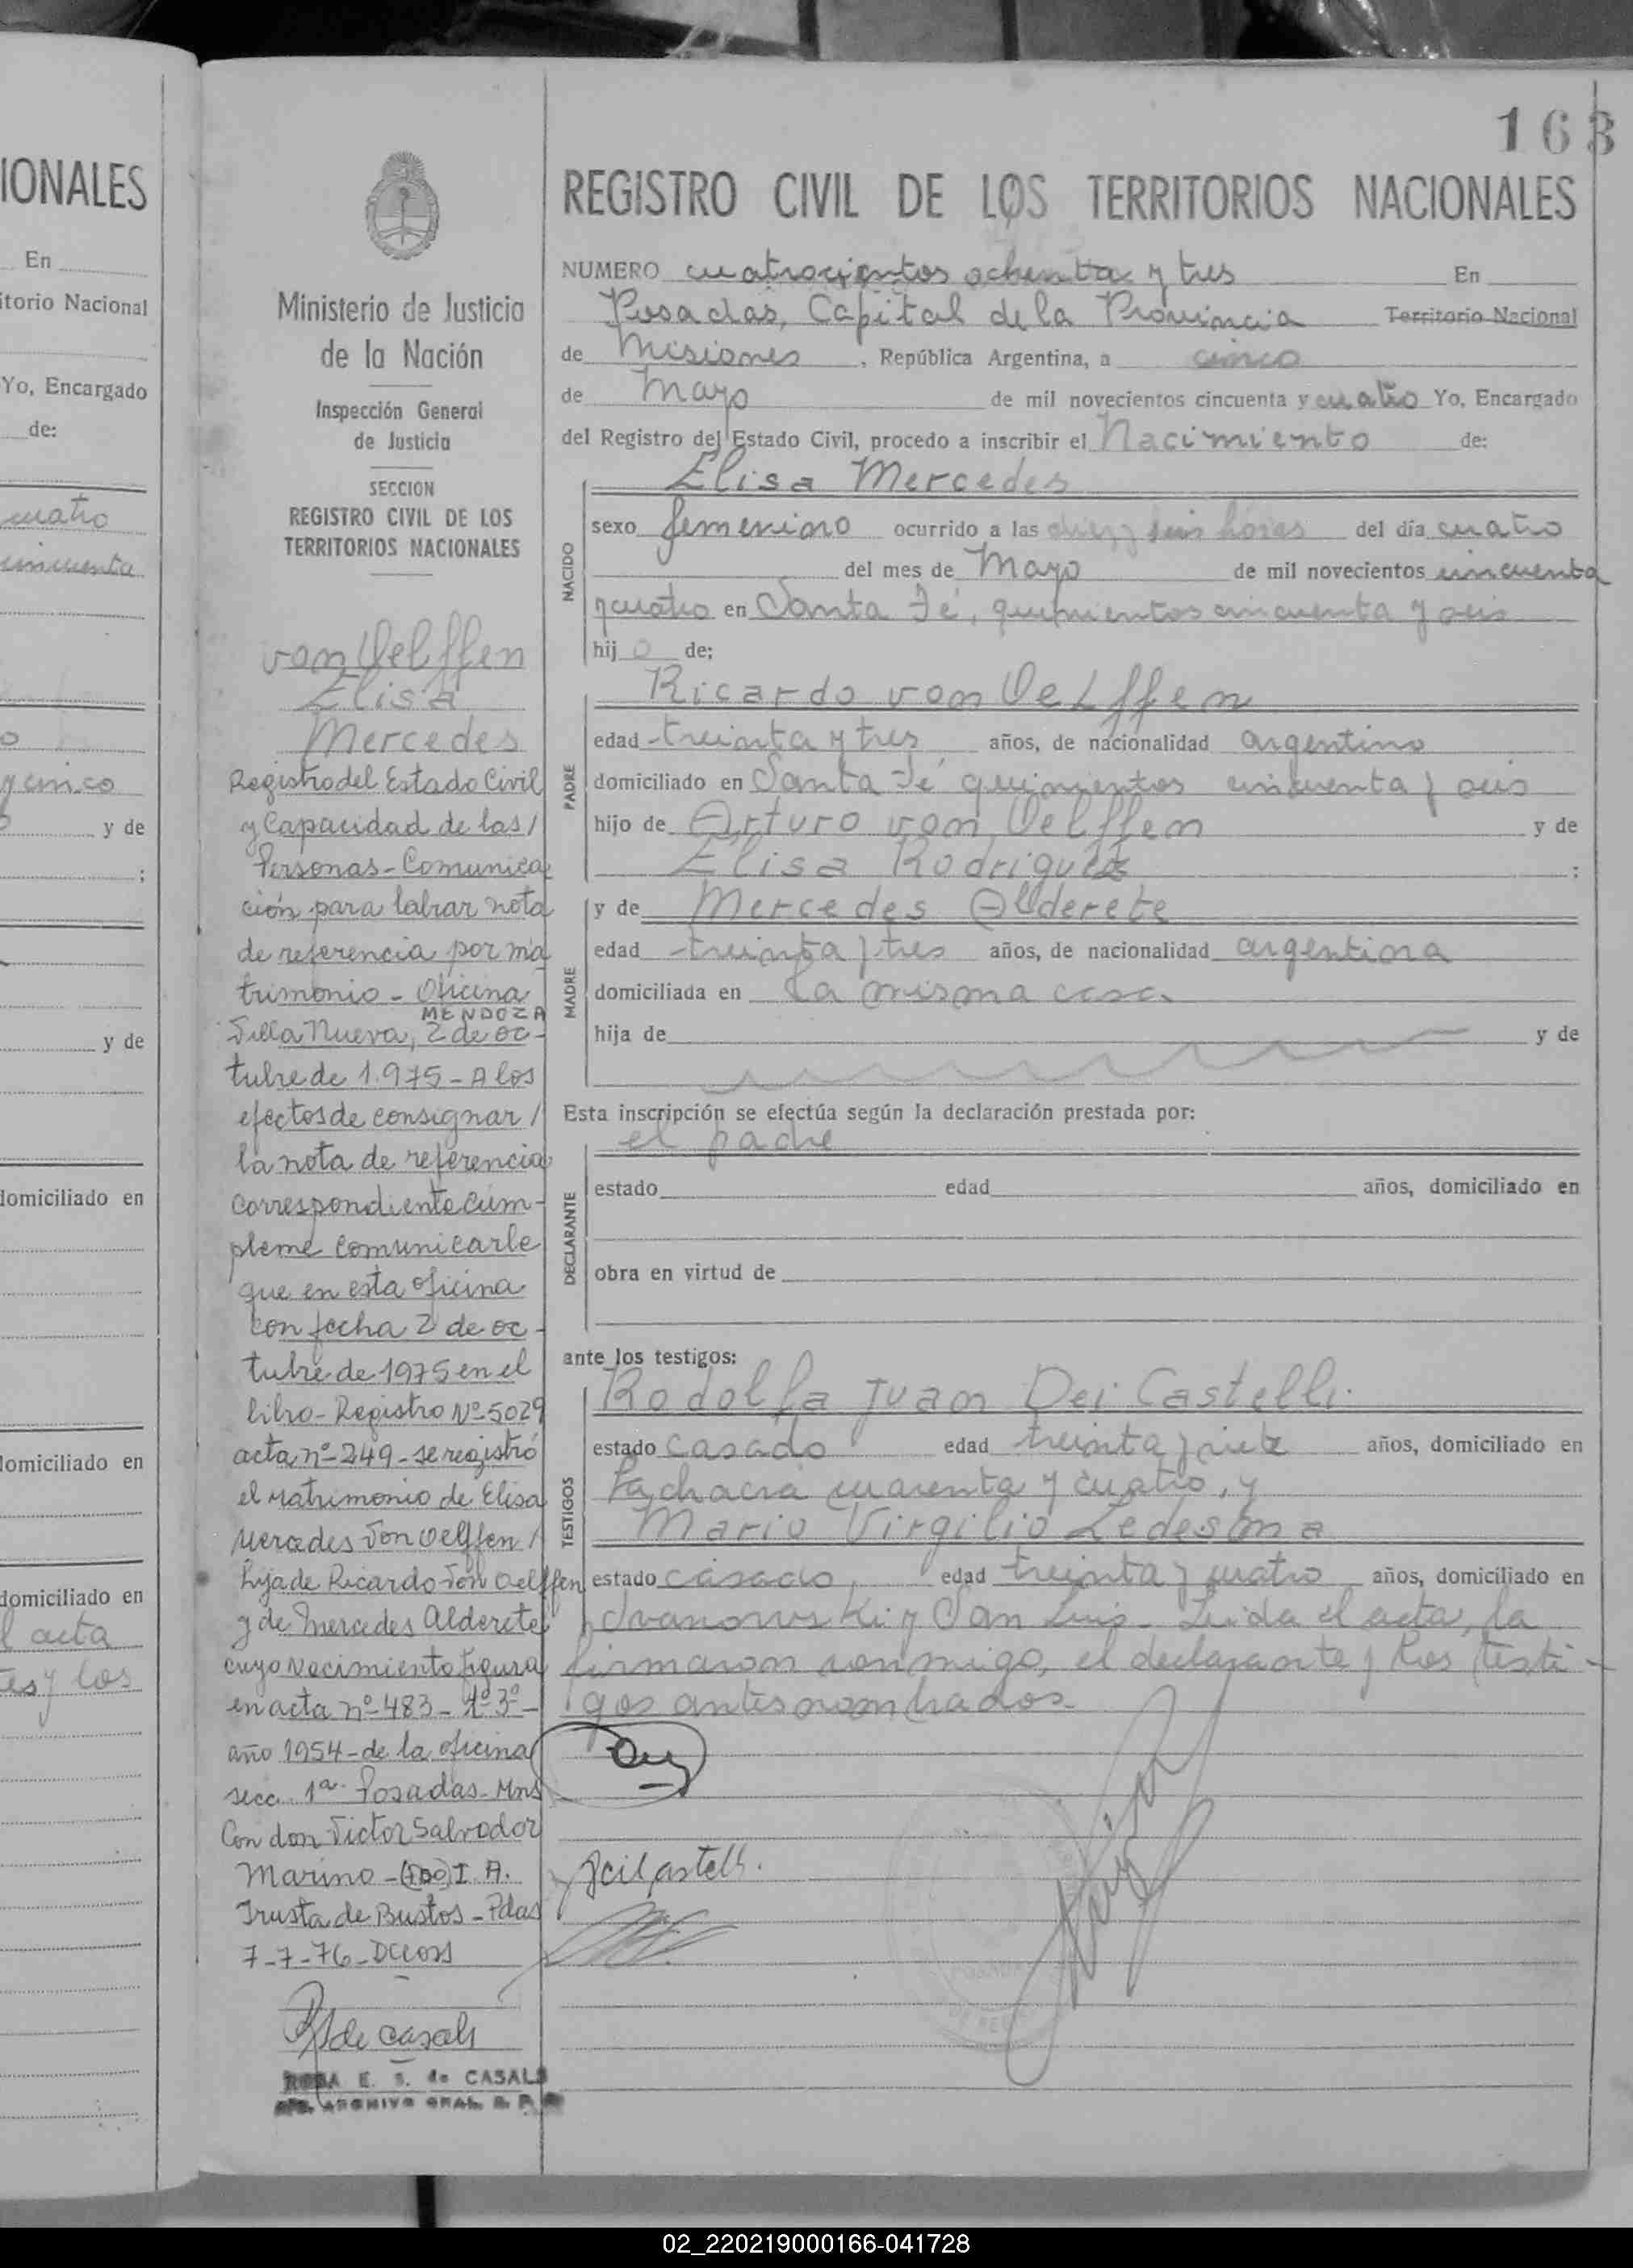 163
IONALES
En
itorio Nacional
Yo, Encargado
de:
cuatro
cincuenta
o
y cinco
y de
;
y de
domiciliado en
domiciliado en
domiciliado en
l acta
tes y los
Ministerio de Justicia
de la Nación
Inspección General
de Justicia
SECCION
REGISTRO CIVIL DE LOS
TERRITORIOS NACIONALES
von Oelffen
Elisa
Mercedes
Registro del Estado Civil
y Capacidad de las /
Personas - Comunica
ción para labrar nota
de referencia por ma
trimonio - Oficina
MENDOZA
Villa Nueva, 2 de oc-
tubre de 1.975 - A los
efectos de consignar /
la nota de referencia
correspondiente cúm-
pleme comunicarle
que en esta oficina
con fecha 2 de oc-
tubre de 1975 en el
libro - Registro Nº 5029
acta nº 249 - se registró
el matrimonio de Elisa
Mercedes Von Oelffen /
hija de Ricardo Von Oelffen
y de Mercedes Alderete
cuyo Nacimiento figura
en acta nº 483 - tº 3º -
año 1954 - de la oficina
secc. 1ª Posadas - Mns
Con don Victor Salvador
Marino - I. A.
de Bustos - Pdas
7-7-76 -
de Casals
ROSA E. S. de CASALS
ARCHIVO GRAL. R. P.
REGISTRO CIVIL DE LOS TERRITORIOS NACIONALES
NUMERO cuatrocientos ochenta y tres En
Posadas, Capital de la Provincia Territorio Nacional
de Misiones, República Argentina, a cinco
de Mayo de mil novecientos cincuenta y cuatro Yo, Encargado
del Registro del Estado Civil, procedo a inscribir el Nacimiento de:
NACIDO
Elisa Mercedes
sexo femenino ocurrido a las diez y seis horas del día cuatro
del mes de Mayo de mil novecientos cincuenta
y cuatro en Santa Fé, quinientos cincuenta y seis
hij a de:
PADRE
Ricardo von Oelffen
edad treinta y tres años, de nacionalidad argentino
domiciliado en Santa Fé quinientos cincuenta y seis
hijo de Arturo von Oelffen y de
Elisa Rodriguez ;
MADRE
y de Mercedes Alderete
edad treinta y tres años, de nacionalidad argentina
domiciliada en la misma casa.
hija de y de
Esta inscripción se efectúa según la declaración prestada por:
el padre
DECLARANTE
estado edad años, domiciliado en
obra en virtud de
ante los testigos:
TESTIGOS
Rodolfo Juan Dei Castelli
estado casado edad treinta y siete años, domiciliado en
La chacra cuarenta y cuatro, y
Mario Virgilio Ledesma
estado casado, edad treinta y cuatro años, domiciliado en
Ivanowski y San Luis - Leida el acta, la
firmaron conmigo, el declarante y los testi-
gos antes nombrados.
Dei Castelli.
02_220219000166-041728